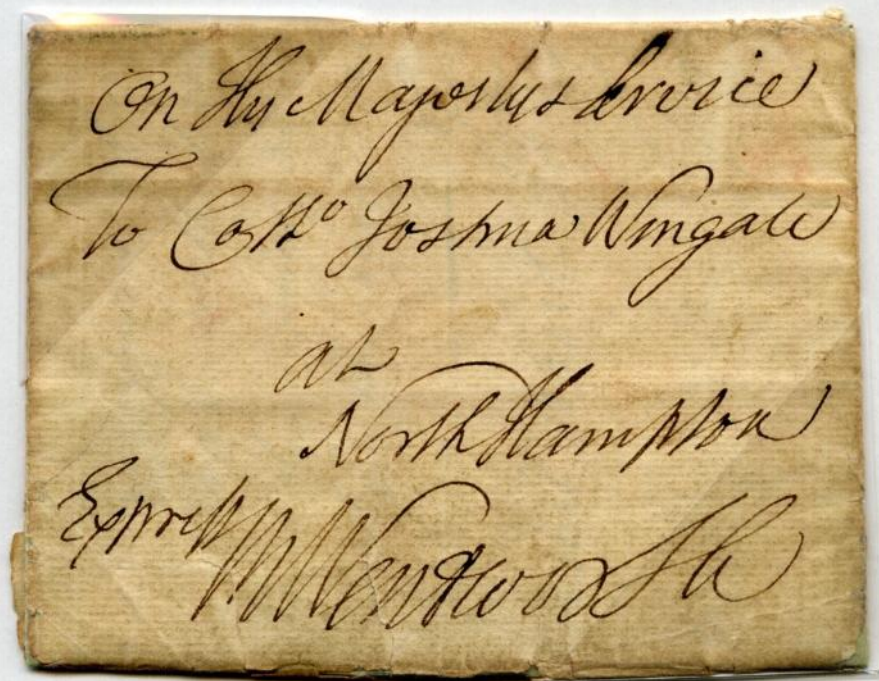 On His Majestys Service
To Collo Joshua Wingate
at
North Hampton
Express
M Wentworth